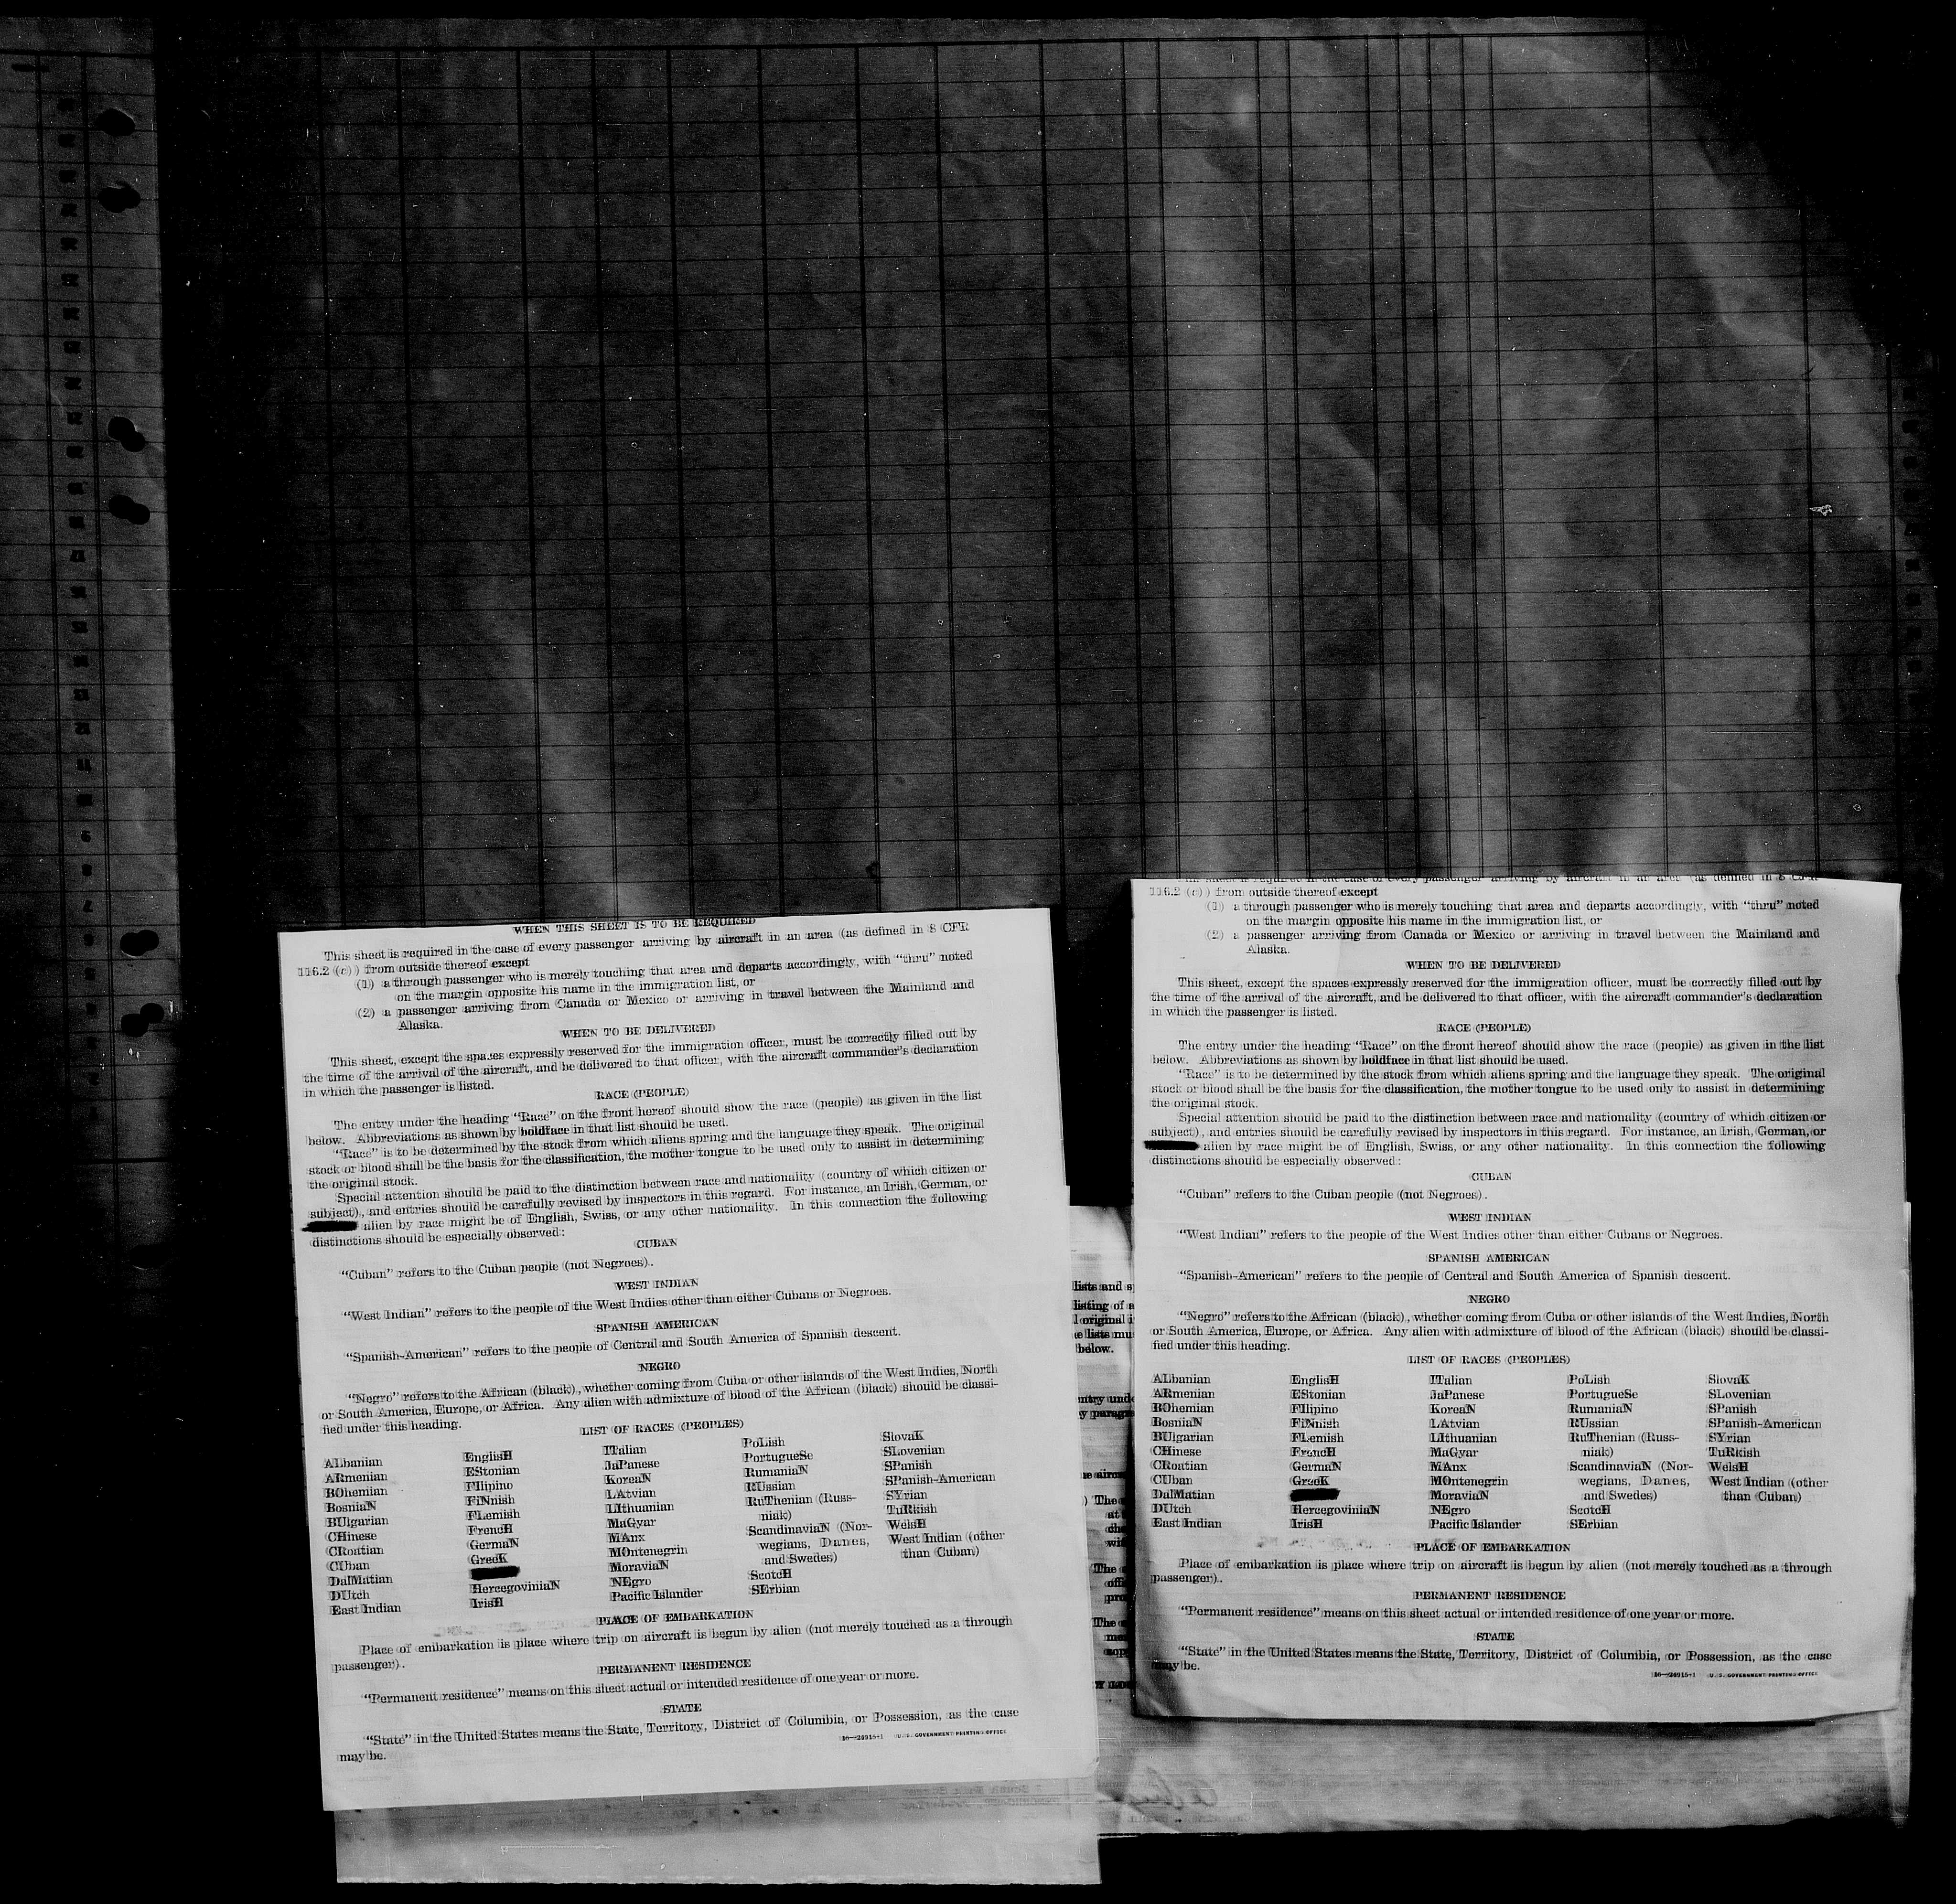 WHEN THIS SHEET IS TO BE REQUIRED
This sheet is required in the case of every passenger arriving by aircraft in an area (as defined in 8 CFR
116.2 (c)) from outside thereof except
(1) a through passenger who is merely touching that area and departs accordingly, with “thru” noted
on the margin opposite his name in the immigration list, or
(2) a passenger arriving from Canada or Mexico or arriving in travel between the Mainland and
Alaska.
WHEN TO BE DELIVERED
This sheet, except the spaces expressly reserved for the immigration officer, must be correctly filled out by
the time of the arrival of the aircraft, and be delivered to that officer, with the aircraft commander's declaration
in which the passenger is listed.
RACE (PEOPLE)
The entry under the heading “Race” on the front hereof should show the race (people) as given in the list
below. Abbreviations as shown by boldface in that list should be used.
“Race” is to be determined by the stock from which aliens spring and the language they speak. The original
stock or blood shall be the basis for the classification, the mother tongue to be used only to assist in determining
the original stock.
Special attention should be paid to the distinction between race and nationality (country of which citizen or
subject), and entries should be carefully revised by inspectors in this regard. For instance, an Irish, German, or
alien by race might be of English, Swiss, or any other nationality. In this connection the following
distinctions should be especially observed:
CUBAN
“Cuban” refers to the Cuban people (not Negroes).
WEST INDIAN
“West Indian” refers to the people of the West Indies other than either Cubans or Negroes.
SPANISH AMERICAN
“Spanish-American” refers to the people of Central and South America of Spanish descent.
NEGRO
“Negro” refers to the African (black), whether coming from Cuba or other islands of the West Indies, North
or South America, Europe, or Africa. Any alien with admixture of blood of the African (black) should be classi-
fied under this heading.
LIST OF RACES (PEOPLES)
ALbanian
ARmenian
BOhemian
BosniaN
BUlgarian
CHinese
CRoatian
CUban
DalMatian
DUtch
East Indian
EnglisH
EStonian
FIlipino
FiNnish
FLemish
FrencH
GermaN
GreeK
HercegoviniaN
IrisH
ITalian
JaPanese
KoreaN
LAtvian
LIthuanian
MaGyar
MAnx
MOntenegrin
MoraviaN
NEgro
Pacific Islander
PoLish
PortugueSe
RumaniaN
RUssian
RuThenian (Russ-
niak)
ScandinaviaN (Nor-
wegians, Danes,
and Swedes)
ScotcH
SErbian
SlovaK
SLovenian
SPanish
SPanish-American
SYrian
TuRkish
WelsH
West Indian (other
than Cuban)
PLACE OF EMBARKATION
Place of embarkation is place where trip on aircraft is begun by alien (not merely touched as a through
passenger).
PERMANENT RESIDENCE
“Permanent residence” means on this sheet actual or intended residence of one year or more.
STATE
“State” in the United States means the State, Territory, District of Columbia, or Possession, as the case
may be.
16—24915-1 U. S. GOVERNMENT PRINTING OFFICE
lists and
listing of
original
lists
below.
The
The
The
This sheet is required in the case of every passenger arriving by aircraft in an area (as defined in 8 CFR
116.2 (c)) from outside thereof except
(1) a through passenger who is merely touching that area and departs accordingly, with “thru” noted
on the margin opposite his name in the immigration list, or
(2) a passenger arriving from Canada or Mexico or arriving in travel between the Mainland and
Alaska.
WHEN TO BE DELIVERED
This sheet, except the spaces expressly reserved for the immigration officer, must be correctly filled out by
the time of the arrival of the aircraft, and be delivered to that officer, with the aircraft commander's declaration
in which the passenger is listed.
RACE (PEOPLE)
The entry under the heading “Race” on the front hereof should show the race (people) as given in the list
below. Abbreviations as shown by boldface in that list should be used.
“Race” is to be determined by the stock from which aliens spring and the language they speak. The original
stock or blood shall be the basis for the classification, the mother tongue to be used only to assist in determining
the original stock.
Special attention should be paid to the distinction between race and nationality (country of which citizen or
subject), and entries should be carefully revised by inspectors in this regard. For instance, an Irish, German, or
alien by race might be of English, Swiss, or any other nationality. In this connection the following
distinctions should be especially observed:
CUBAN
“Cuban” refers to the Cuban people (not Negroes).
WEST INDIAN
“West Indian” refers to the people of the West Indies other than either Cubans or Negroes.
SPANISH AMERICAN
“Spanish-American” refers to the people of Central and South America of Spanish descent.
NEGRO
“Negro” refers to the African (black), whether coming from Cuba or other islands of the West Indies, North
or South America, Europe, or Africa. Any alien with admixture of blood of the African (black) should be classi-
fied under this heading.
LIST OF RACES (PEOPLES)
ALbanian
ARmenian
BOhemian
BosniaN
BUlgarian
CHinese
CRoatian
CUban
DalMatian
DUtch
East Indian
EnglisH
EStonian
FIlipino
FiNnish
FLemish
FrencH
GermaN
GreeK
HercegoviniaN
IrisH
ITalian
JaPanese
KoreaN
LAtvian
LIthuanian
MaGyar
MAnx
MOntenegrin
MoraviaN
NEgro
Pacific Islander
PoLish
PortugueSe
RumaniaN
RUssian
RuThenian (Russ-
niak)
ScandinaviaN (Nor-
wegians, Danes,
and Swedes)
ScotcH
SErbian
SlovaK
SLovenian
SPanish
SPanish-American
SYrian
TuRkish
WelsH
West Indian (other
than Cuban)
PLACE OF EMBARKATION
Place of embarkation is place where trip on aircraft is begun by alien (not merely touched as a through
passenger).
PERMANENT RESIDENCE
“Permanent residence” means on this sheet actual or intended residence of one year or more.
STATE
“State” in the United States means the State, Territory, District of Columbia, or Possession, as the case
may be.
16—24915-1 U. S. GOVERNMENT PRINTING OFFICE